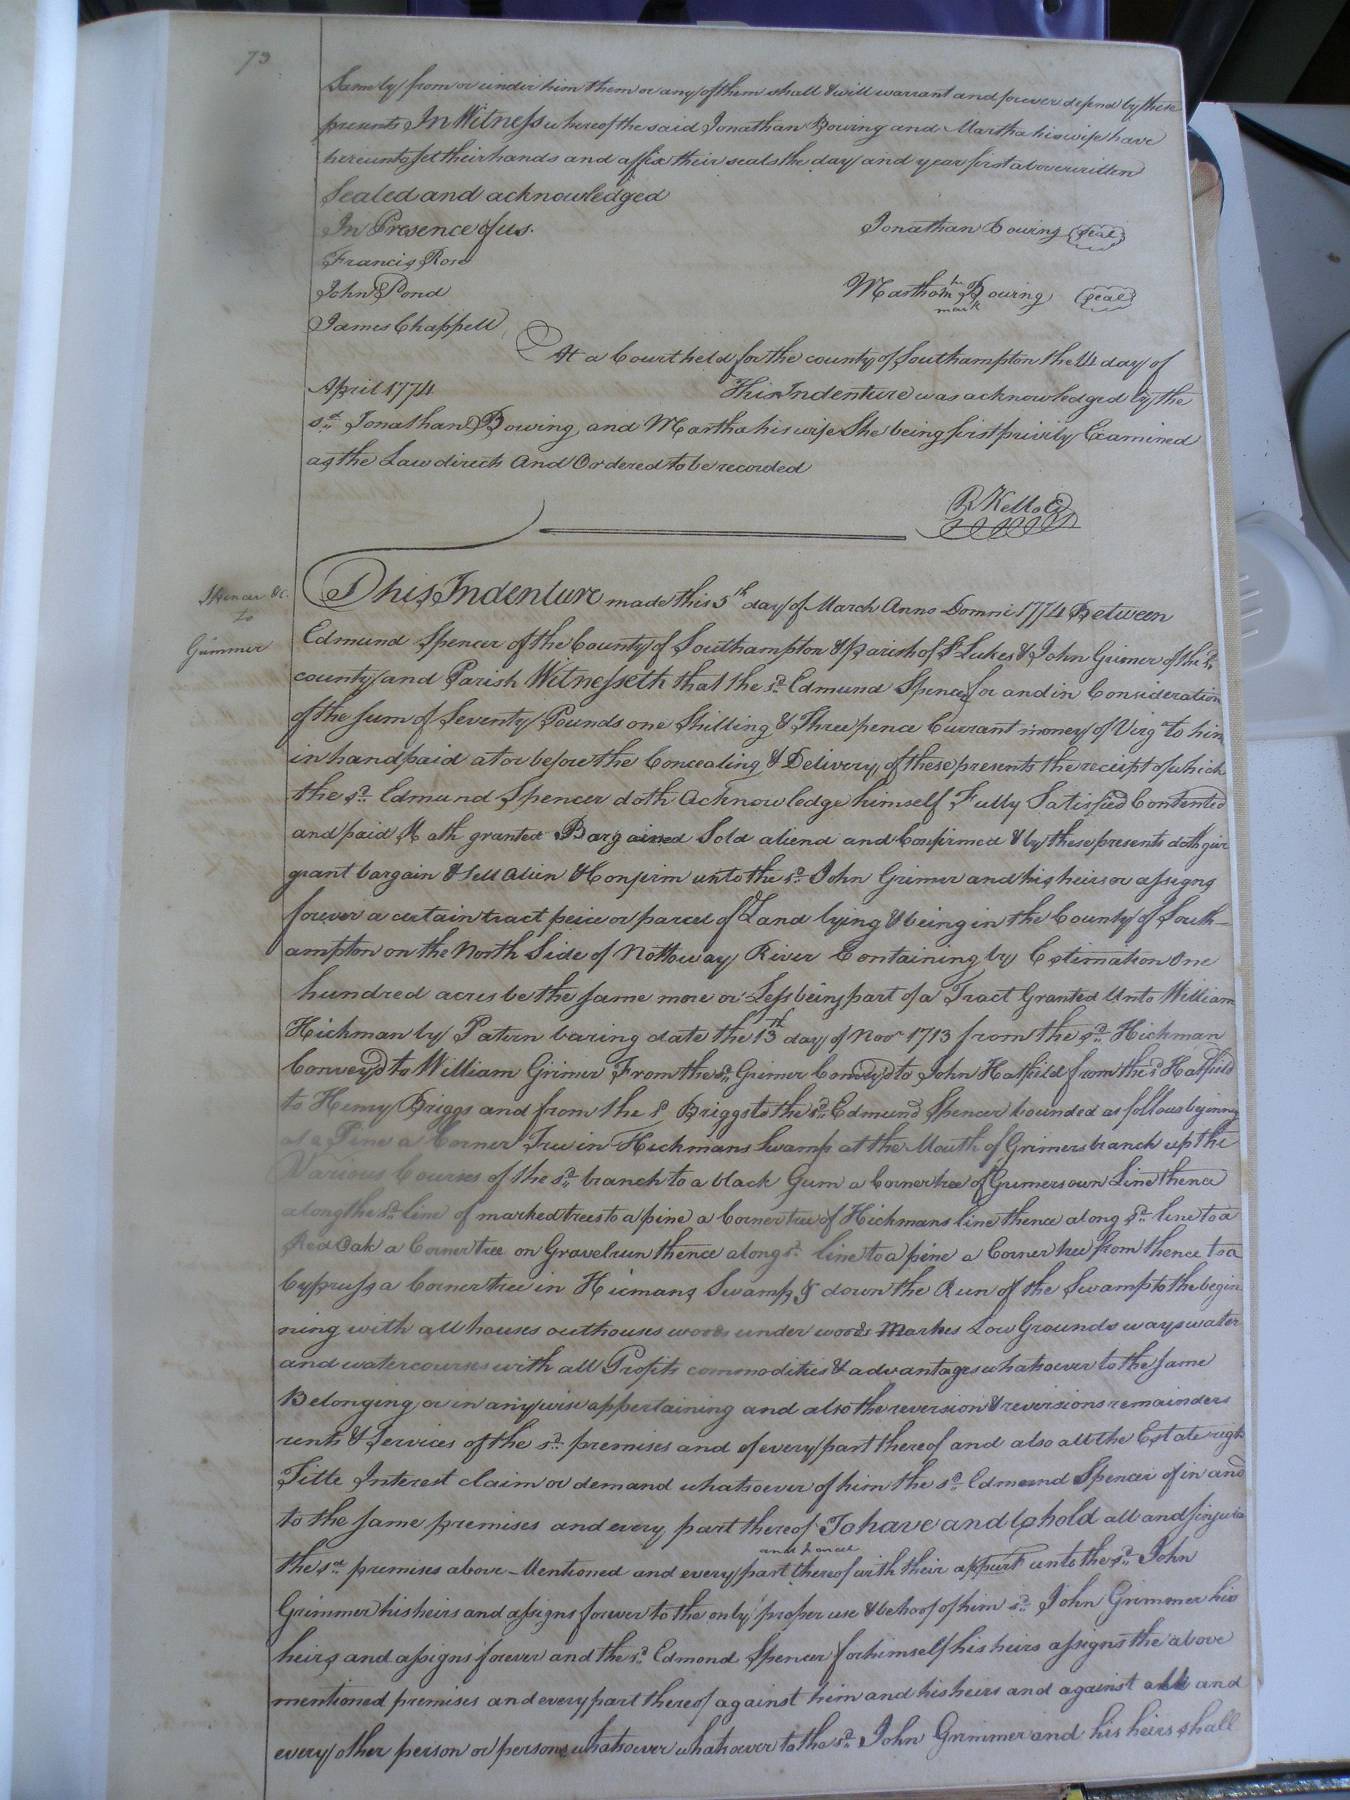 73
Same by from or under him them or any of them shall & will warrant and forever defend by these
presents In Witness whereof the said Jonathan Bowing and Martha his wife have
hereunto set their hands and affix their seals the day and year first above written
Sealed and acknowledged
In Presence of us. Jonathan Bowing (seal)
Francis Rose
John Pond Martha her Bowing (seal)
mark
James Chappell
At a Court held for the county of Southampton the 14 day of
April 1774 This Indenture was acknowledged by the
sd. Jonathan Bowing and Martha his wife She being first privily Examined
as the Law directs And Ordered to be recorded
R Kello C
Spencer &c.
to
Grimmer
This Indenture made this 5th day of March Anno Domni 1774 Between
Edmund Spencer of the County of Southampton & Parish of St Lukes & John Grimer of the sd
county and Parish Witnesseth that the sd. Edmund Spencer for and in Consideration
of the sum of Seventy Pounds one Shilling & Three pence Currant money of Virga to him
in hand paid at or before the Concealing & Delivery of these presents the receipt of which
the sd. Edmund Spencer doth Acknowledge himself Fully Satisfied Contented
and paid Hath granted Bargained Sold aliend and Confirmed & by these presents doth give
grant bargain & sell Alien & Confirm unto the sd. John Grimer and his heirs or assigns
forever a certain tract peice or parcel of Land lying & being in the County of South-
ampton on the North Side of Nottoway River Containing by Estimation One
hundred acres be the same more or Less being part of a Tract Granted Unto William
Hickman by Patern baring date the 13th day of Novr 1713 from the sd. Hickman
Conveyd to William Grimer From the sd. Grimer Conveyd to John Hatfield from the sd Hatfield
to Henry Briggs and from the sd Briggs to the sd. Edmund Spencer bounded as follows begining
at a Pine a Corner Tree in Hickmans Swamp at the Mouth of Grimers branch up the
Various Courses of the sd. branch to a black Gum a Corner tree of Grimers own Line thence
along the sd. line of marked trees to a pine a Corner tree of Hickmans line thence along sd. line to a
Red Oak a Corner tree on Gravel run thence along sd. line to a pine a Corner tree from thence to a
Cypruss a Corner tree in Hicmans Swamp & down the Run of the Swamp to the begin
ning with all houses outhouses woods under woods Markes Low Grounds ways water
and watercourses with all Profits commodities & advantages whatsoever to the same
Belonging or in anywise appertaining and also the reversion & reversions remainders
rents & Services of the sd. premises and of every part thereof and also all the Estate right
Title Interest claim or demand whatsoever of him the sd. Edmund Spencer of in and
to the same premises and every part thereof To have and to hold all and singular
and parcel
the sd. premises above Mentioned and every part thereof with their appurt unto the sd. John
Grimmer his heirs and assigns forever to the only proper use & behoof of him sd. John Grimmer his
heirs and assigns forever and the sd. Edmond Spencer for himself his heirs assigns the above
mentioned premises and every part thereof against him and his heirs and against all and
every other person or persons whatsoever whatsoever to the sd. John Grimmer and his heirs shall